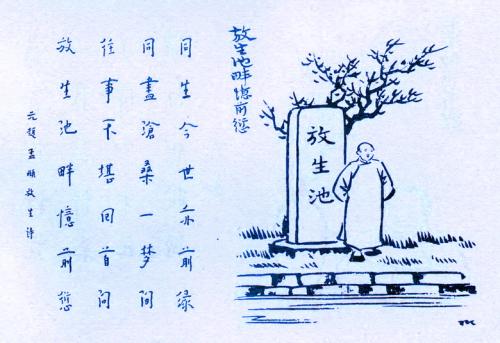 放生池畔憶前愆
放生池
同生今世亦前緣
同盡滄桑一梦間
往事不堪回首問
放生池畔憶前愆
元趙孟頫放生詩